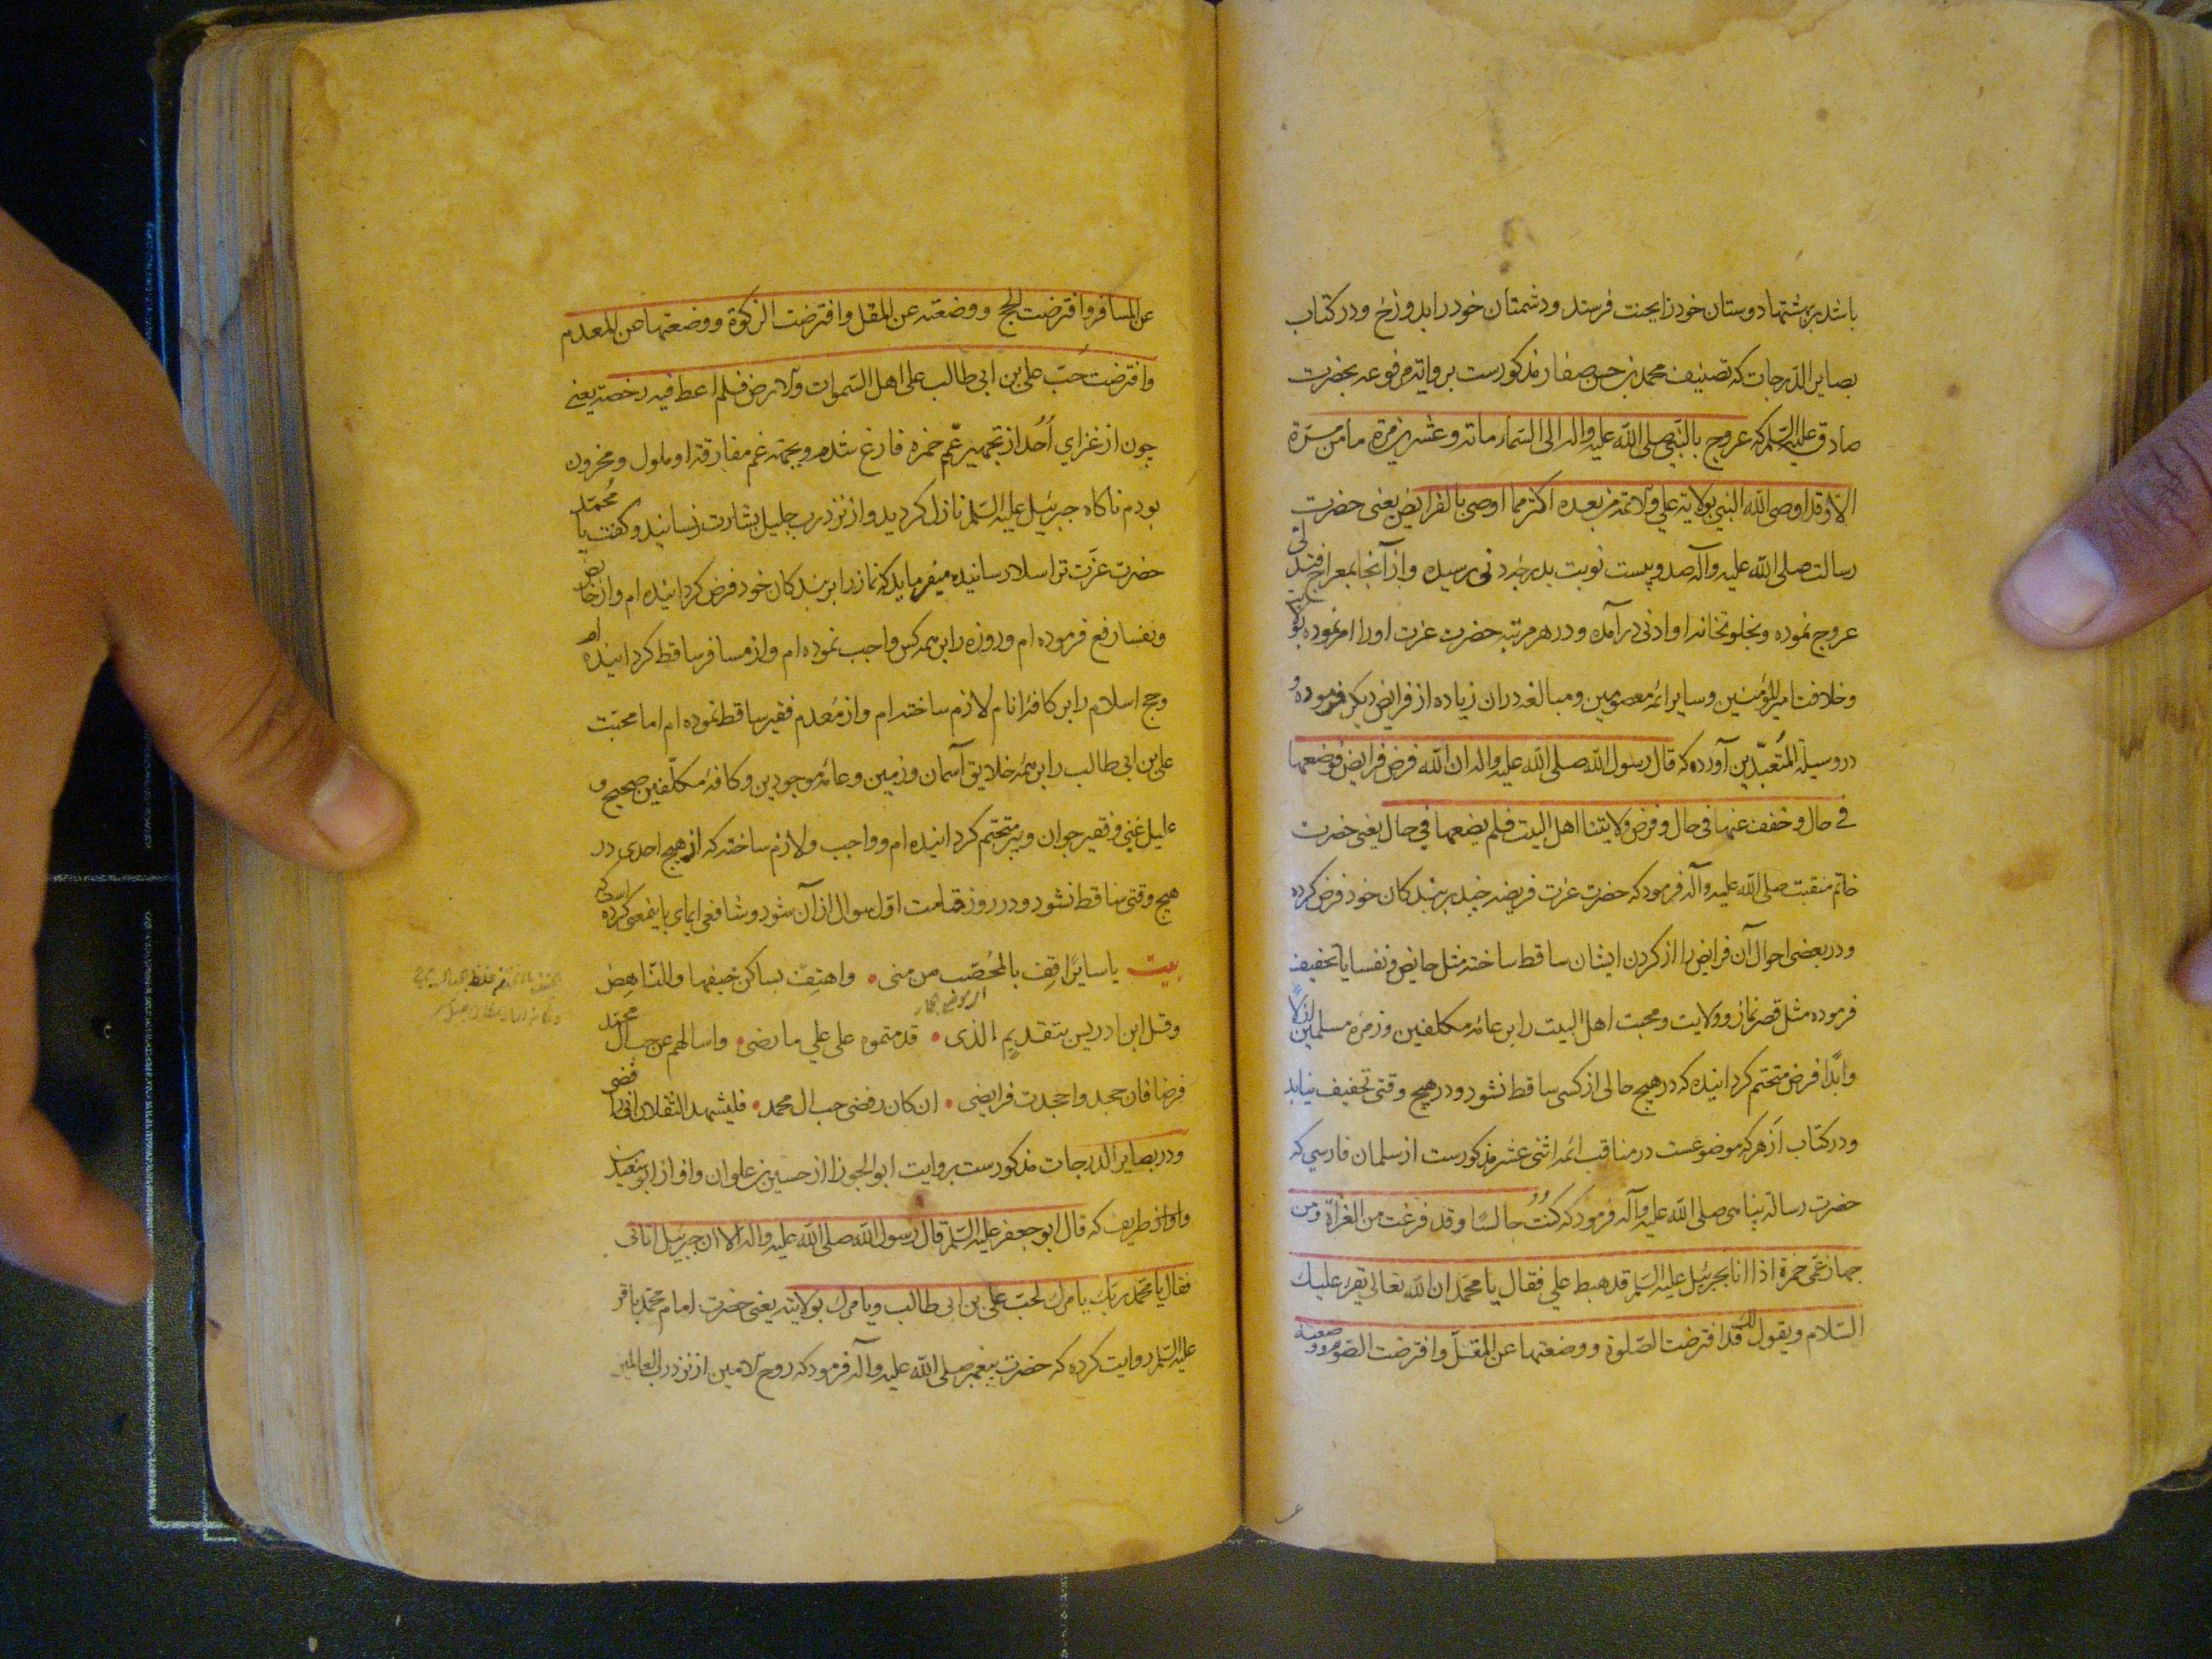 باشد بر پشتها دوستان خود را بجنت فرستد و دشمتان خود را بدوزخ و در کتاب
بصایر الدرجات که تصنیف محمد بن حسن صفار مذکورست بروایته مرفوعه بحضرت
صادق علیه السلم که عروج بالنبی صلی الله علیه واله الی السماء مائة وعشرین مرة ما من مرة
الا وقد اوصی الله النبی بولایة علی والائمة من بعده اکثر مما اوصی بالفرایض یعنی حضرت
رسالت صلی الله علیه وآله صد و بیست نوبت بدرجه دنی رسیده و از آنجا بمعراج فتدلی
عروج نموده و بخلوتخانه او ادنی درآمده و در هر مرتبه حضرت عزت او را امر نموده بولایت
وخلافت امیرالمؤمنین و سایر ائمه معصومین و مبالغه در ان زیاده از فرایض دیکر فرموده و
در وسیلة المتعبدین آورده که قال رسول الله صلی الله علیه واله ان الله فرض فرایض فوضعها
فی حال وخفف عنها فی حال وفرض ولایتنا اهل البیت فلم یضعها فی حال یعنی حضرت
خاتم منقبت صلی الله علیه وآله فرمود که حضرت عزت فریضه چند بر بندکان خود فرض کرده
و در بعضی احوال آن فرایض را از کردن ایشان ساقط ساخته مثل حایض و نفسا یا تخفیف
فرموده مثل قصر نماز و ولایت و محبت اهل البیت را بر عامه مکلفین و زمره مسلمین ازلا
وابدا فرض متحتم کردانیده که در هیچ حالی از کسی ساقط نشود و در هیچ وقتی تخفیف نیابد
و در کتاب ازهر که موضوعست در مناقب ائمه اثنی عشر مذکورست از سلمان فارسی که
حضرت رسالة پناهی صلی الله علیه وآله فرمود که کنت جالسا وقد فرغت من الغزاة ومن
جهاز عمی حمزة اذا انا بجبرئیل علیه السلم قد هبط علی فقال یا محمد ان الله تعالی یقرء علیک
السلام ویقول لک قد افترضت الصلوة ووضعتها عن المقتل وافترضت الصوم ووضعته
عن المسافر وافترضت الحج ووضعته عن المقل وافترضت الزکوة ووضعتها عن المعدم
وافترضت حب علی بن ابی طالب علی اهل السموات والارض فلم اعط فیه رخصة یعنی
چون از غزای أحد از تجهیز عم حمزه فارغ شدم و بجهة غم مفارقة او ملول و محزون
بودم ناکاه جبرئیل علیه السلم نازل کردید و از نزد رب جلیل بشارت رسانید و کفت یا محمد
حضرت عزت ترا سلام رسانیده میفرماید که نماز را بر بندکان خود فرض کردانیده ام و از حایض
و نفسا رفع فرموده ام و روزه را بر همه کس واجب نموده ام و از مسافر ساقط کردانیده ام
و حج اسلام را بر کافه انام لازم ساخته ام و از معدم فقیر ساقط نموده ام اما محبت
علی بن ابی طالب را بر همه خلایق آسمان و زمین و عامه موجودین و کافه مکلفین صحیح و
علیل غنی و فقیر جوان و پیر متحتم کردانیده ام و واجب و لازم ساخته که از هیچ احدی در
هیچ وقتی ساقط نشود و در روز قیامت اول سوال از آن شود و شافعی ایمای باینمعنی کرده است که
بیت یا سایرا قف بالمحصب من منی • واهتف بساکن خیفها والناهض
وقل ابن ادریس بتقدیم الذی • قدمتموه علی علی ما رضی • واسالهم عن حب ال محمد
فرضا فان جحد واحجدت فرایضی • ان کان رفضی حب ال محمد • فلیشهد الثقلان انی رافضی
و در بصایر الدرجات مذکورست بروایت ابوالجوزا از حسین بن علوان و او از ابو سعید
و او از طریف که قال ابو جعفر علیه السلم قال رسول الله صلی الله علیه واله الا ان جبرئیل اتانی
فقال یا محمد ربک یامرک لحب علی بن ابی طالب ویامرک بولایته یعنی حضرت امام محمد باقر
علیه السلم روایت کرده که حضرت پیغمبر صلی الله علیه وآله فرمود که روح الامین از نزد رب العالمین